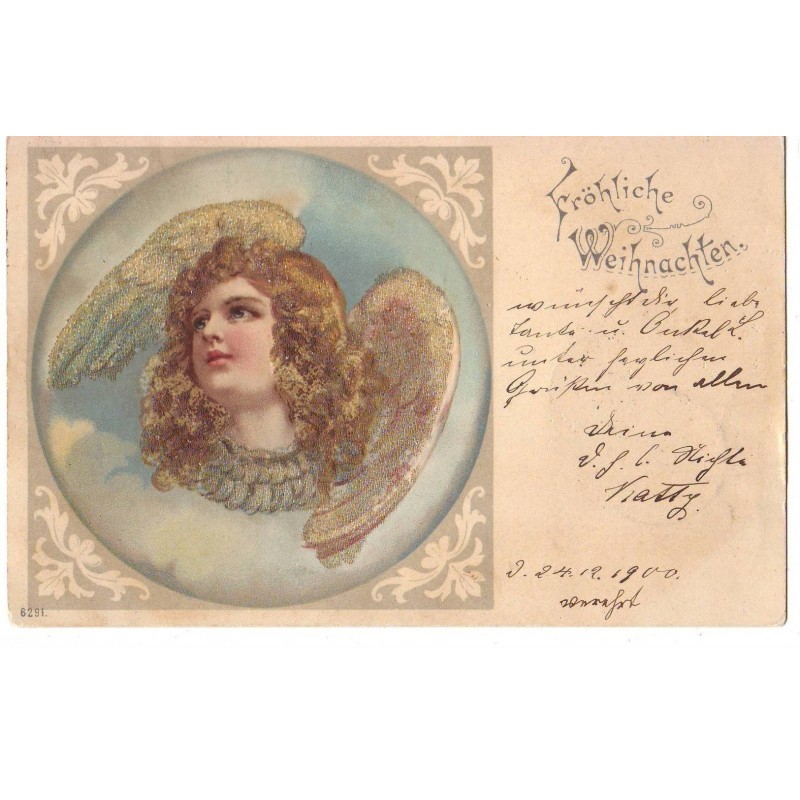 Fröhliche
Weihnachten.
wünscht dir liebe
Tante u. Onkel L.
unter herzlichen
Grüßen von allen
Deine
D. s. l. Nichte
Katty.
d. 24.12.1900.
verehrt
6291.